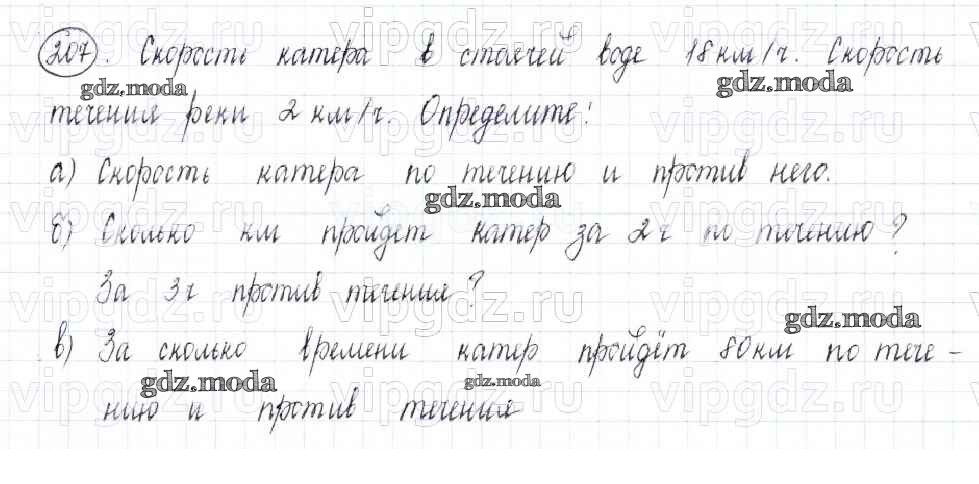 207. Скорость катера в стоячей воде 18 км/ч. Скорость
течения реки 2 км/ч. Определите:
а) Скорость катера по течению и против него.
б) Сколько км пройдет катер за 2 ч по течению?
За 3 ч против течения?
в) За сколько времени катер пройдёт 80 км по тече-
нию и против течения
gdz.moda
gdz.moda
gdz.moda
gdz.moda
gdz.moda
gdz.moda
vipgdz.ru